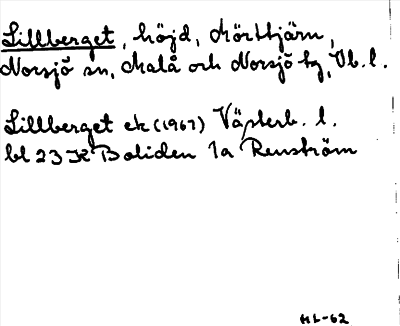 Lillberget, höjd, Mörttjärn,
Norsjö sn, Malå och Norsjö tg, Vb. l.
Lillberget ek (1967) Västerb. l.
bl 23 K Boliden 1a Renström
HL-62